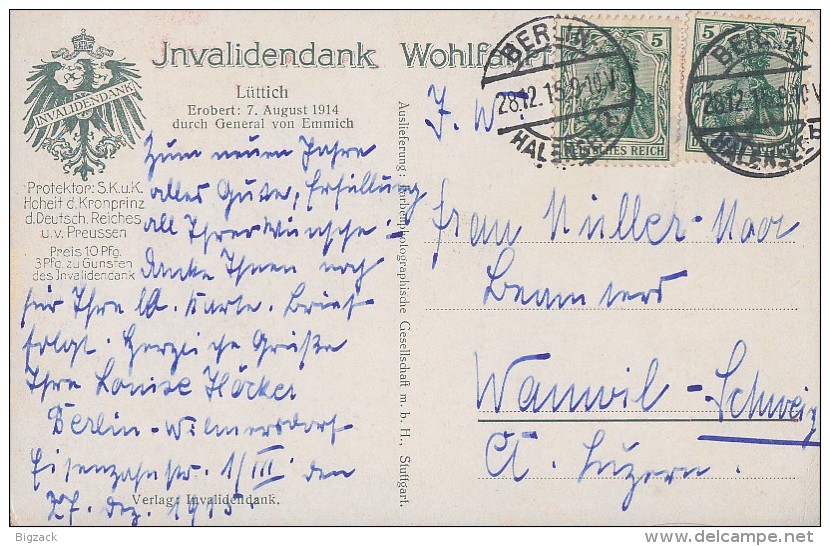 Invalidendank Wohlfahrt
INVALIDENDANK
Lüttich
Erobert: 7. August 1914
durch General von Emmich
Protektor: S.K.u.K.
Hoheit d. Kronprinz
d. Deutsch. Reiches
u. v. Preussen
Preis 10 Pfg.
3 Pfg. zu Gunsten
des Invalidendank
Zum neuen Jahre
alles Gute, Erfüllung
all Ihrer Wünsche!
danke Ihnen noch
für Ihre lb. Karte. Brief
folgt. Herzliche Grüße
Ihre Louise Höcker
Berlin-Wilmersdorf
Eisenzahnstr. 1/III. den
27. Dez. 1915
Verlag: Invalidendank.
Auslieferung: Farbenphotographische Gesellschaft m. b. H., Stuttgart.
5
DEUTSCHES REICH
5
BERLIN
28.12.15.9-10V.
HALENSEE
BERLIN
28.12.15.9-10V.
HALENSEE
Frau Müller-Moor
Beamters
Wauwil-Schweiz
Ct. Luzern.
Bigzack
delcampe.net